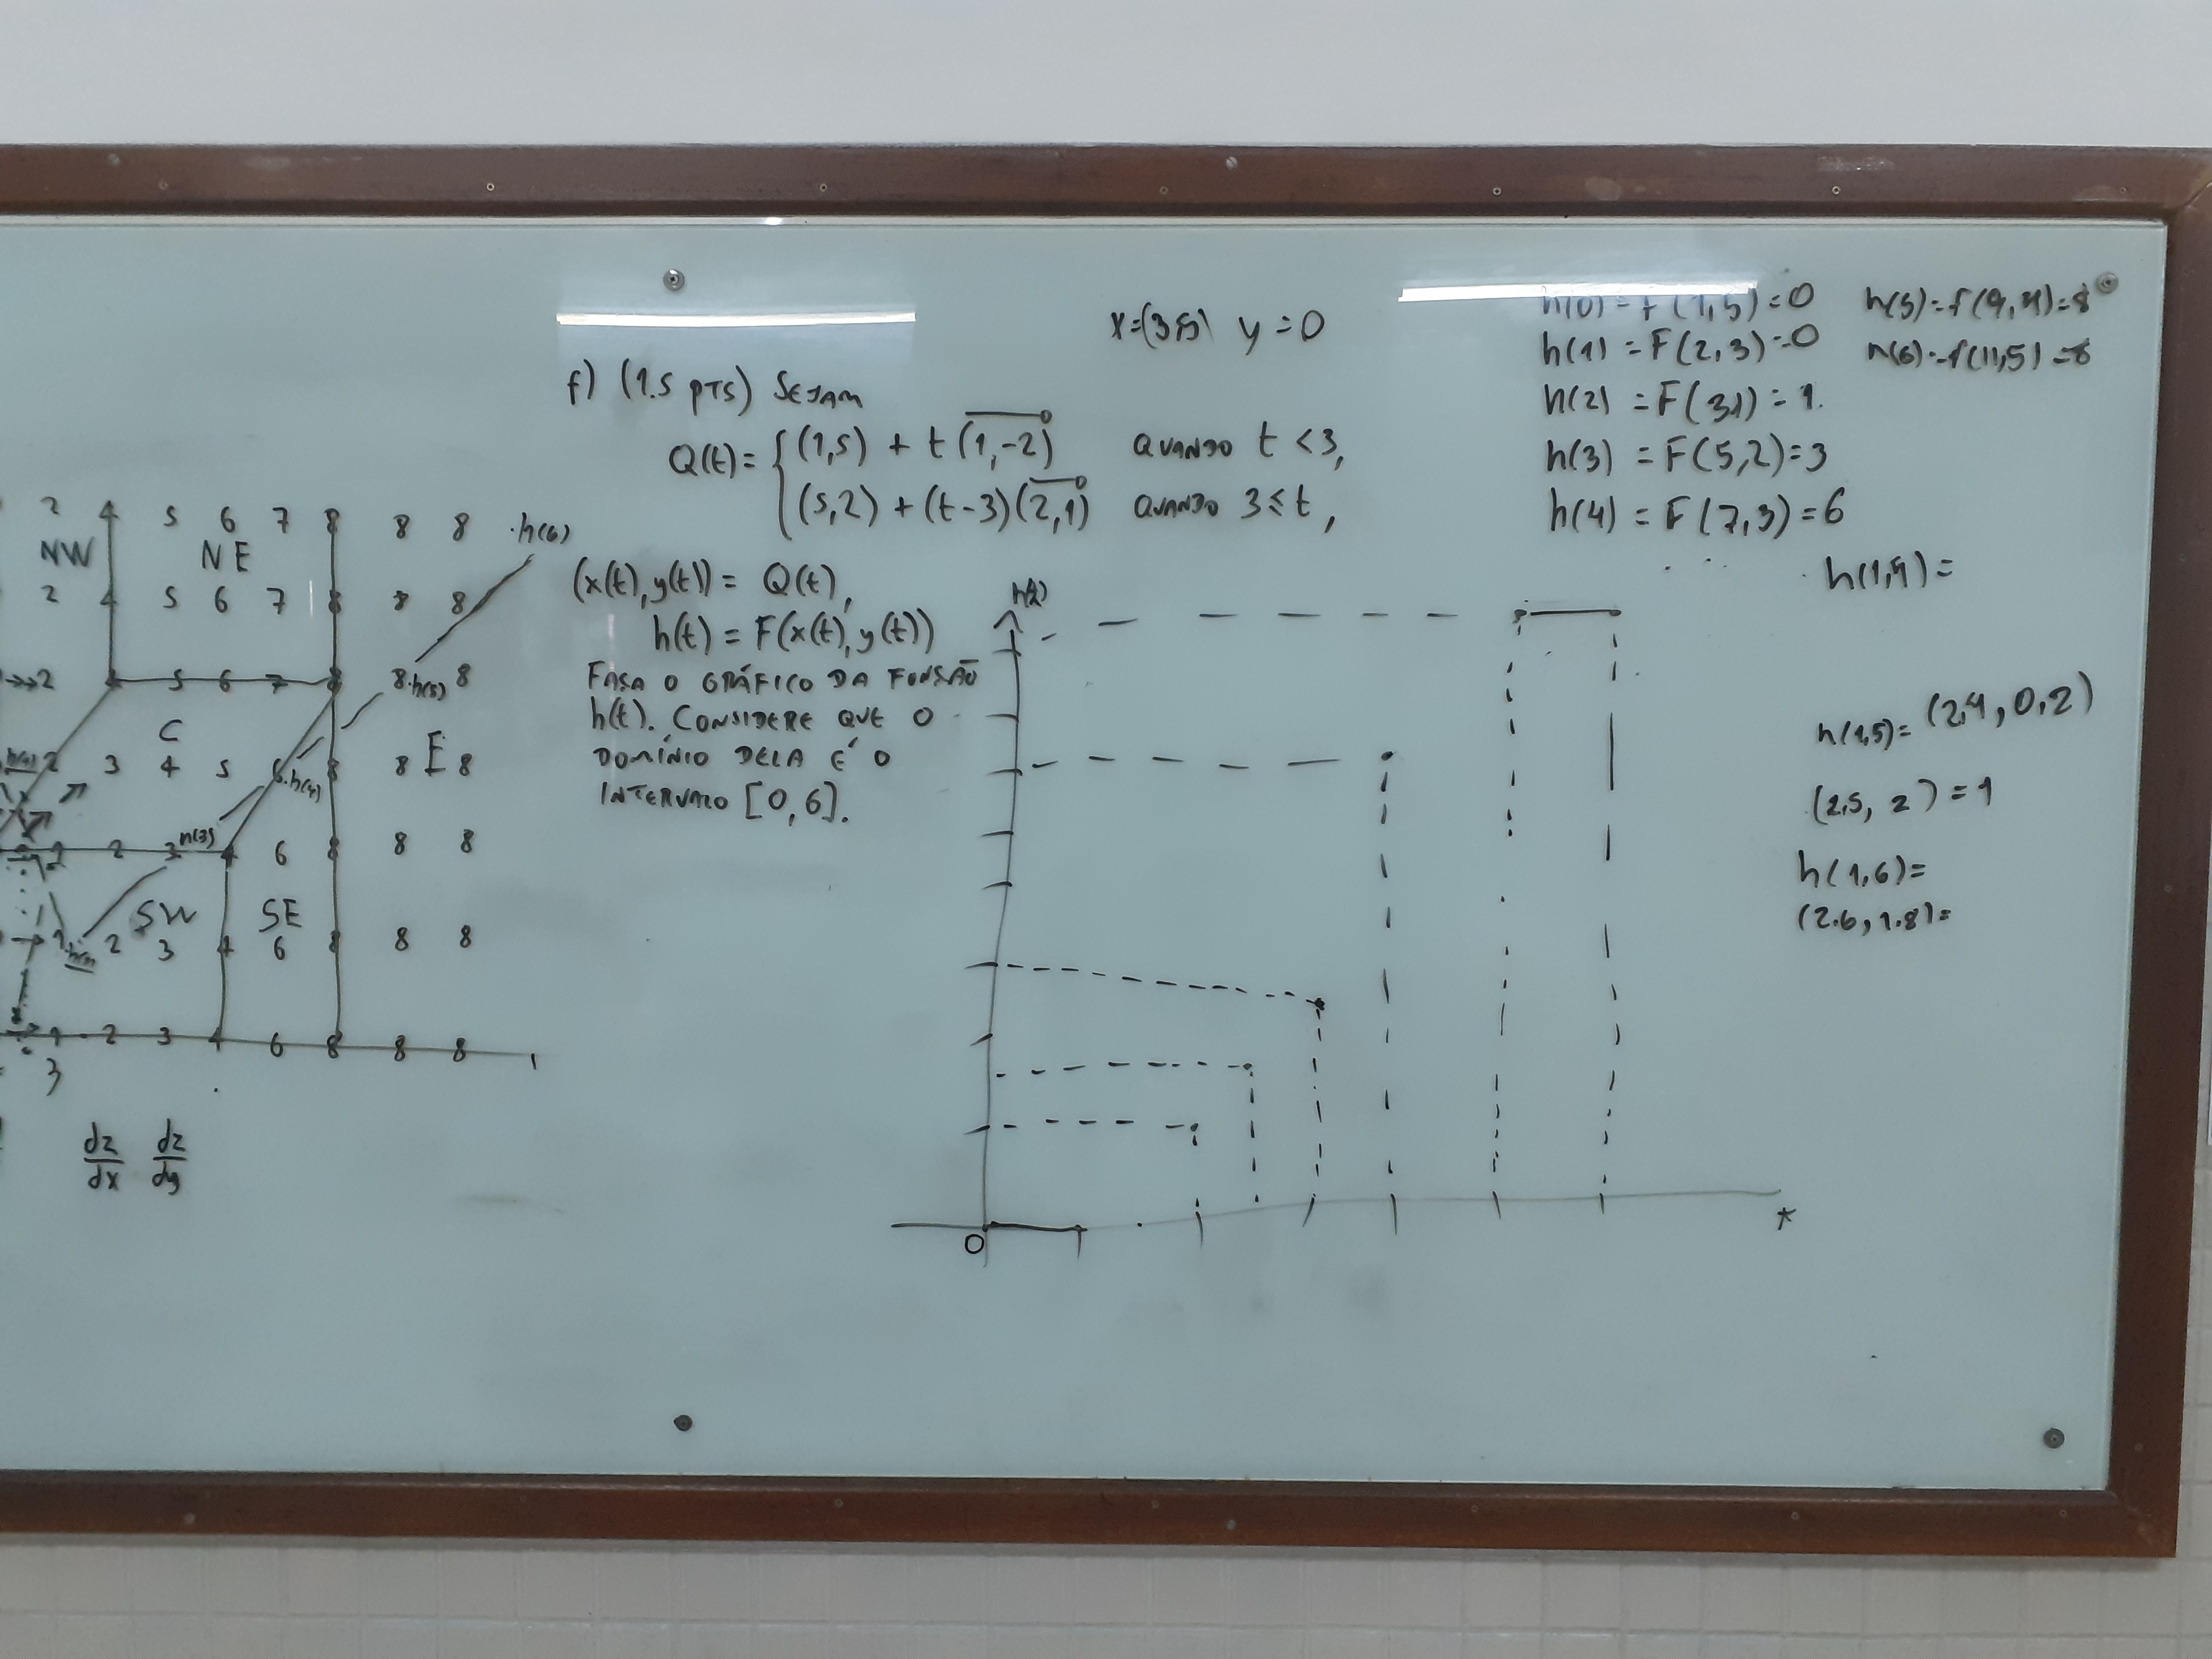 2 4 5 6 7 8 8 8 .h(6)
NW NE
2 4 5 6 7 8 8 8
2 5 6 7 8 8.h(5) 8
C
2 3 4 5 6.h(4) 8 8 E 8
h(3)
1 2 3 4 6 8 8 8
SW SE
1 2 3 4 6 8 8 8
1 2 3 4 6 8 8 8
3
dz/dx dz/dy
x=(3,5) y=0
f) (1.5 PTS) SEJAM
Q(t)= { (1,5) + t(1,-2) QUANDO t<3,
(5,2) + (t-3)(2,1) QUANDO 3≤t,
(x(t),y(t)) = Q(t),
h(t) = F(x(t),y(t))
FAÇA O GRÁFICO DA FUNÇÃO
h(t). CONSIDERE QUE O
DOMÍNIO DELA É O
INTERVALO [0,6].
h(t)
0
t
h(0) = F(1,5)=0
h(1) = F(2,3)=0
h(2) = F(31) = 1.
h(3) = F(5,2)=3
h(4) = F(7,3)=6
h(5)=f(9,4)=8
h(6)=f(11,5)=8
h(1,4)=
h(1,5)= (2,4, 0,2)
(2.5, 2) = 1
h(1,6)=
(2.6, 1.8)=